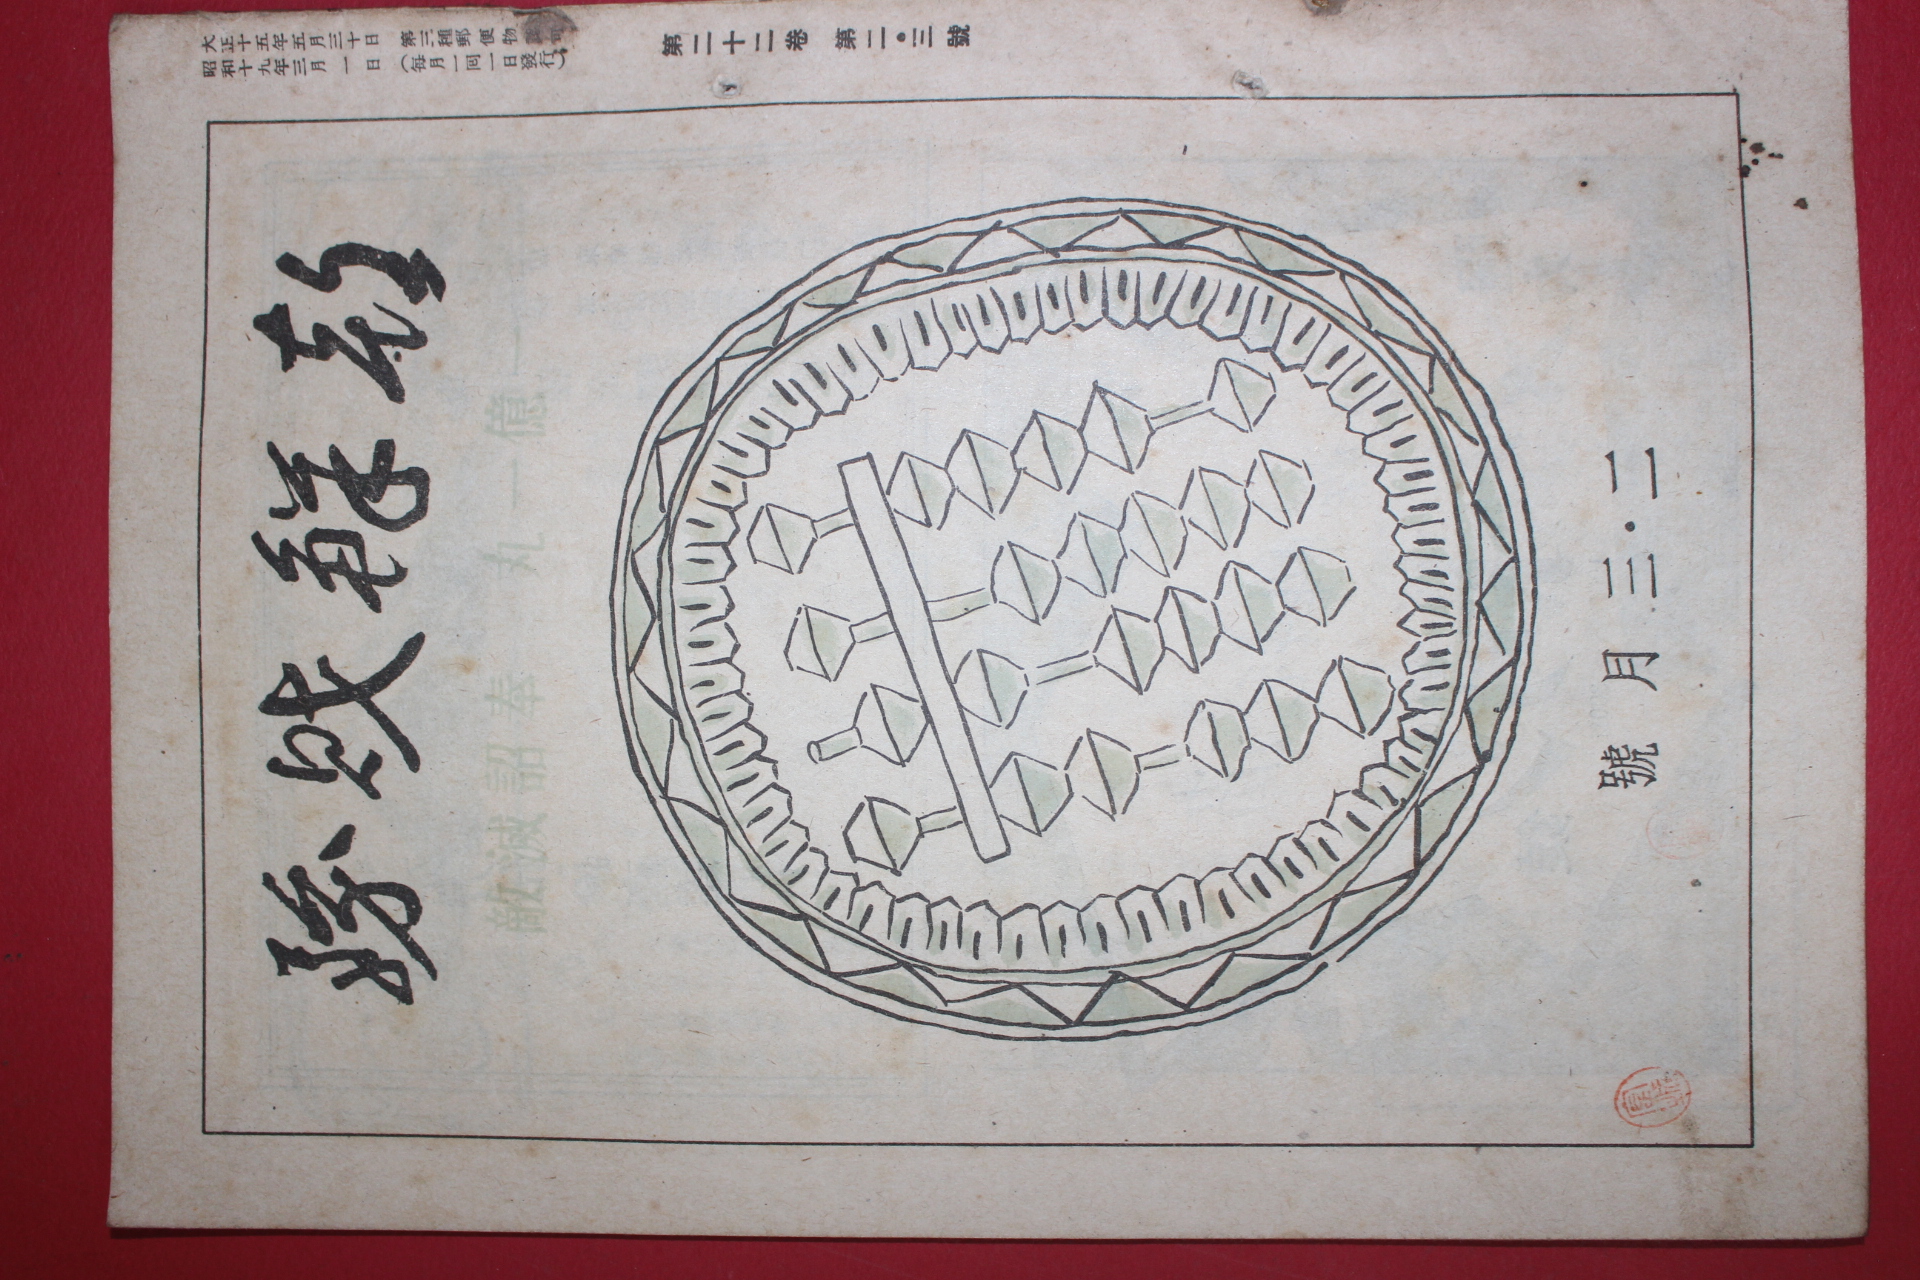 大正十五年五月三十日 第三種郵便物認可
昭和十九年三月一日 (毎月一回一日發行)
第二十二卷 第二・三號
一億一丸 奉詔滅敵
二・三月號